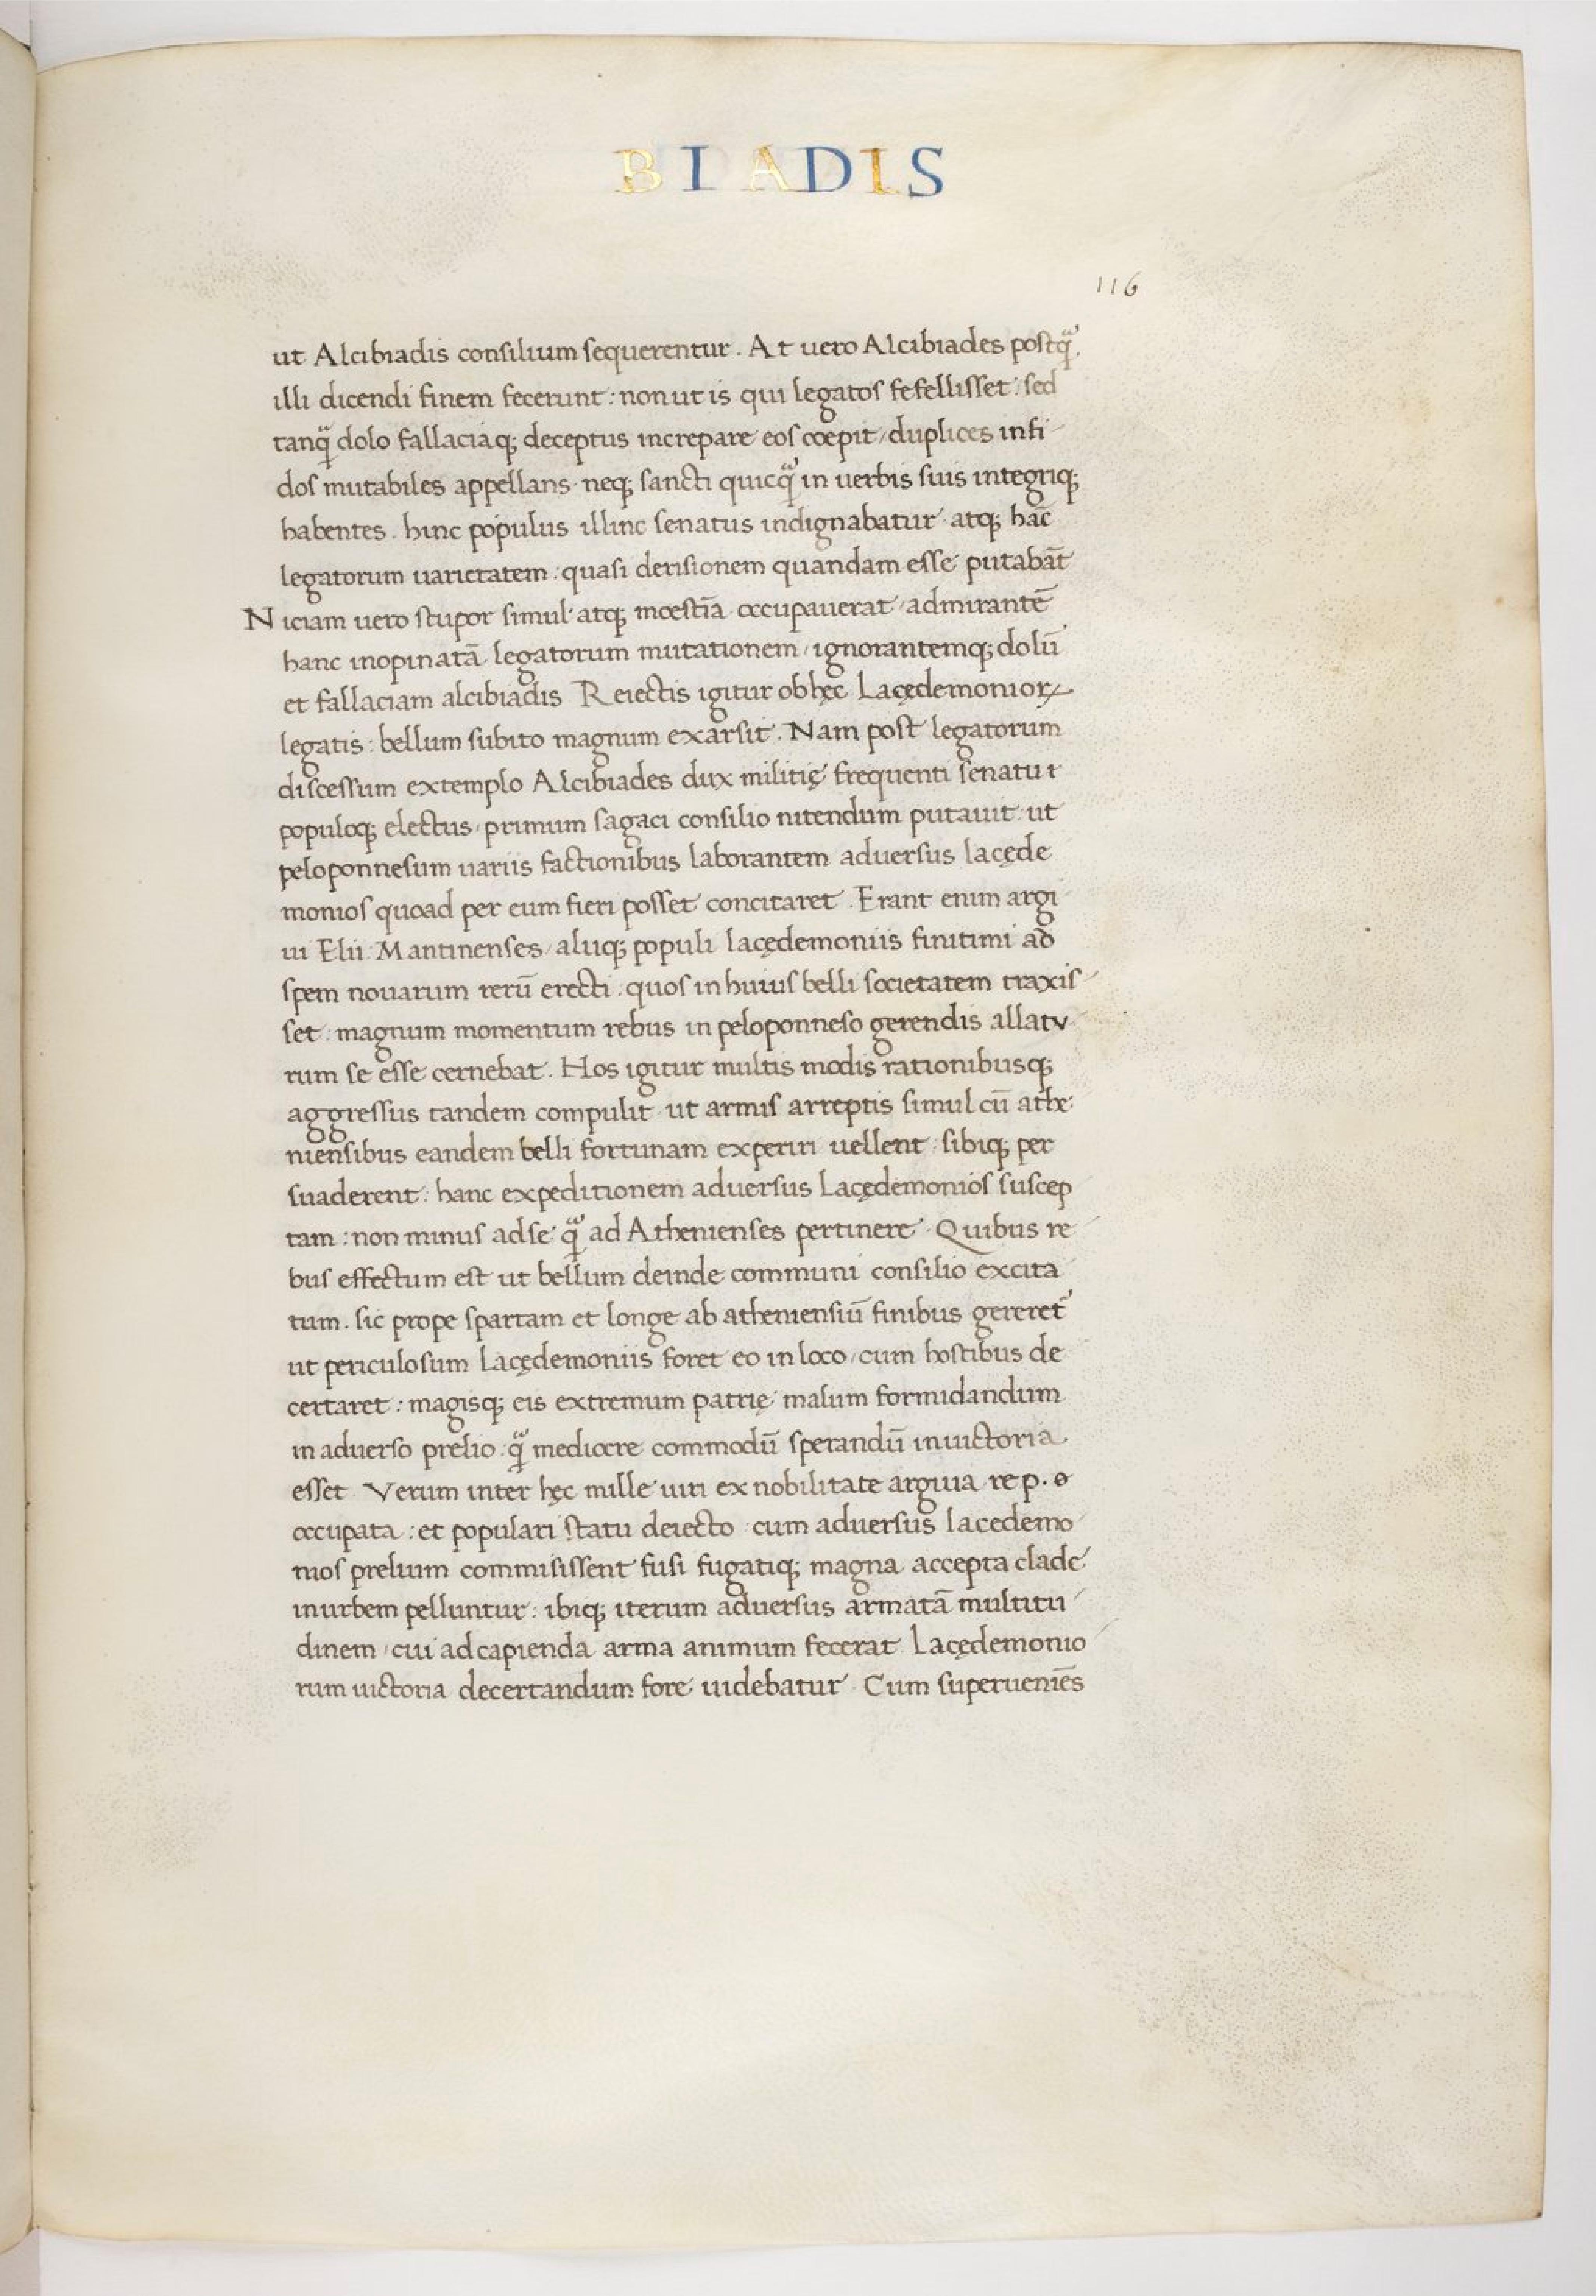 BIADIS
116
ut Alcibiadis consilium sequerentur. At uero Alcibiades postqᷓ
illi dicendi finem fecerunt: non ut is qui legatos fefellisset: sed
tanqᷓ dolo fallaciaq; deceptus increpare eos cœpit, duplices infi
dos mutabiles appellans neq; sancti quicqᷓ in uerbis suis integriq;
habentes. hinc populus illinc senatus indignabatur atq; hāc
legatorum uarietatem: quasi derisionem quandam esse putabāt
Niciam uero stupor simul atq; mœstīa occupauerat, admirantē
hanc inopinatā legatorum mutationem, ignorantemq; dolū
et fallaciam alcibiadis Reiectis igitur ob hęc Lacędemonioꝝ
legatis: bellum subito magnum exarsit. Nam post legatorum
discessum extemplo Alcibiades dux militię frequenti senatu ⁊
populoq; electus, primum sagaci consilio nitendum putauit: ut
peloponnesum uariis factionibus laborantem aduersus lacęde
monios quoad per eum fieri posset concitaret. Erant enim argi
ui Elii Mantinenses, aliiq; populi lacędemoniis finitimi ad
spem nouarum rerū erecti: quos in huius belli societatem traxis
set: magnum momentum rebus in peloponneso gerendis allatu
rum se esse cernebat. Hos igitur multis modis rationibusq;
aggressus tandem compulit ut armis arreptis simul cū athe
niensibus eandem belli fortunam experiri uellent: sibiq; per
suaderent: hanc expeditionem aduersus Lacędemonios suscep
tam: non minus ad se qᷓ ad Athenienses pertinere. Quibus re
bus effectum est ut bellum deinde communi consilio excita
tum. sic prope spartam et longe ab atheniensiū finibus gereret᷑
ut periculosum Lacędemoniis foret eo in loco, cum hostibus de
certaret: magisq; eis extremum patrię malum formidandum
in aduerso prelio: qᷓ mediocre commodū sperandū in uictoria
esset Verum inter hęc mille uiri ex nobilitate argiua re p. o
occupata: et populari statu deiecto cum aduersus lacedemo
nios prelium commisissent fusi fugatiq; magna accepta clade
in urbem pelluntur: ibiq; iterum aduersus armatā multitu
dinem, cui ad capienda arma animum fecerat Lacędemonio
rum uictoria decertandum fore uidebatur. Cum superueniēs